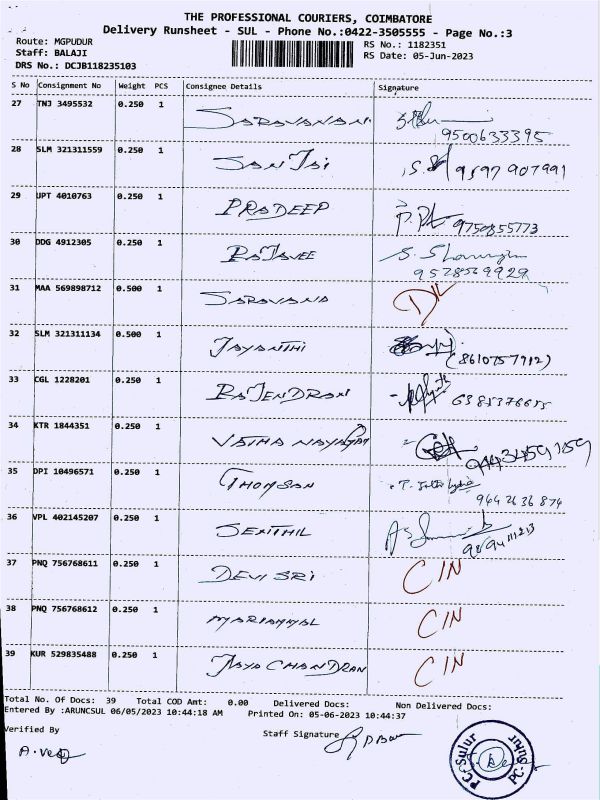 THE PROFESSIONAL COURIERS, COIMBATORE
Delivery Runsheet - SUL - Phone No.:0422-3505555 - Page No.:3
Route: MGPUDUR
RS No.: 1182351
Staff: BALAJI
RS Date: 05-Jun-2023
DRS No.: DCJB118235103
S No Consignment No Weight PCS Consignee Details Signature
27 TNJ 3495532 0.250 1 SARAVANAN
9500633395
28 SLM 321311559 0.250 1 SANJAI 9597907991
29 UPT 4010763 0.250 1 PRADEEP 9750855773
30 DDG 4912305 0.250 1 RAJAVEE
9528569929
31 MAA 569898712 0.500 1 SARAVANA
32 SLM 321311134 0.500 1 JAYANTHI
(8610757912)
33 CGL 1228201 0.250 1 RAJENDRAN 6385376655
34 KTR 1844351 0.250 1 9443459159
35 DPI 10496571 0.250 1 THOMSON
9442636874
36 VPL 402145207 0.250 1 SENTHIL
9894111213
37 PNQ 756768611 0.250 1 DEVI SRI CIN
38 PNQ 756768612 0.250 1 MARIAMMAL CIN
39 KUR 529835488 0.250 1 JAYACHANDRAN CIN
Total No. Of Docs: 39 Total COD Amt: 0.00 Delivered Docs: Non Delivered Docs:
Entered By :ARUNCSUL 06/05/2023 10:44:18 AM Printed On: 05-06-2023 10:44:37
Verified By
Staff Signature
PC-Sulur